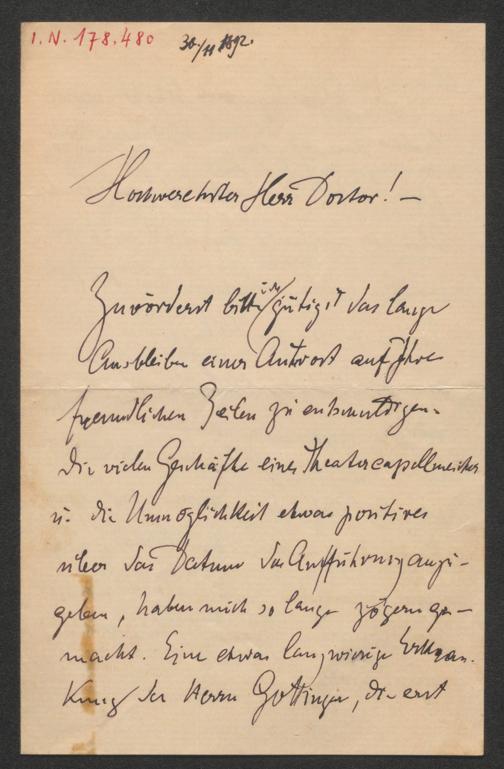 I.N. 178.480
30./11 1892.
Hochverehrter Herr Doctor! —
Zuvörderst bitte ich gütigst das lange
Ausbleiben einer Antwort auf Ihre
freundlichen Zeilen zu entschuldigen.
Die vielen Geschäfte eines Theatercapellmeisters
u. die Unmöglichkeit etwas positives
über das Datum der Aufführung anzu-
geben, haben mich so lange zögern ge-
macht. Eine etwas langwierige Erkran-
kung des Herrn Göttinger, die erst